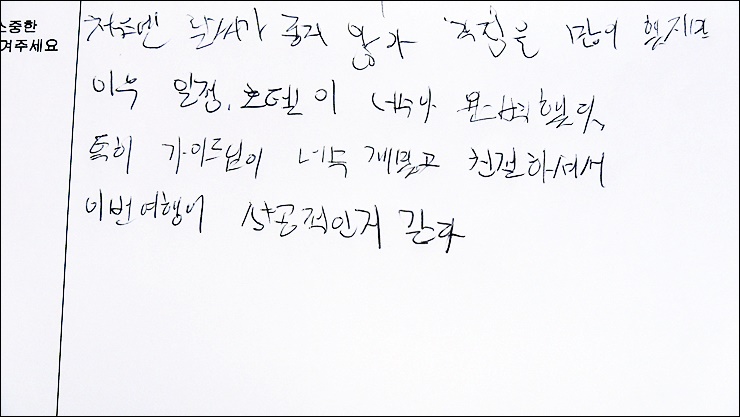 소중한
겨주세요
처음엔 날씨가 좋지 않가 걱정을 많이 했지만
이후 일정, 호텔이 너무나 완벽했다.
특히 가이드님이 너무 재밌고 친절하셔서
이번여행이 성공적인거 같다